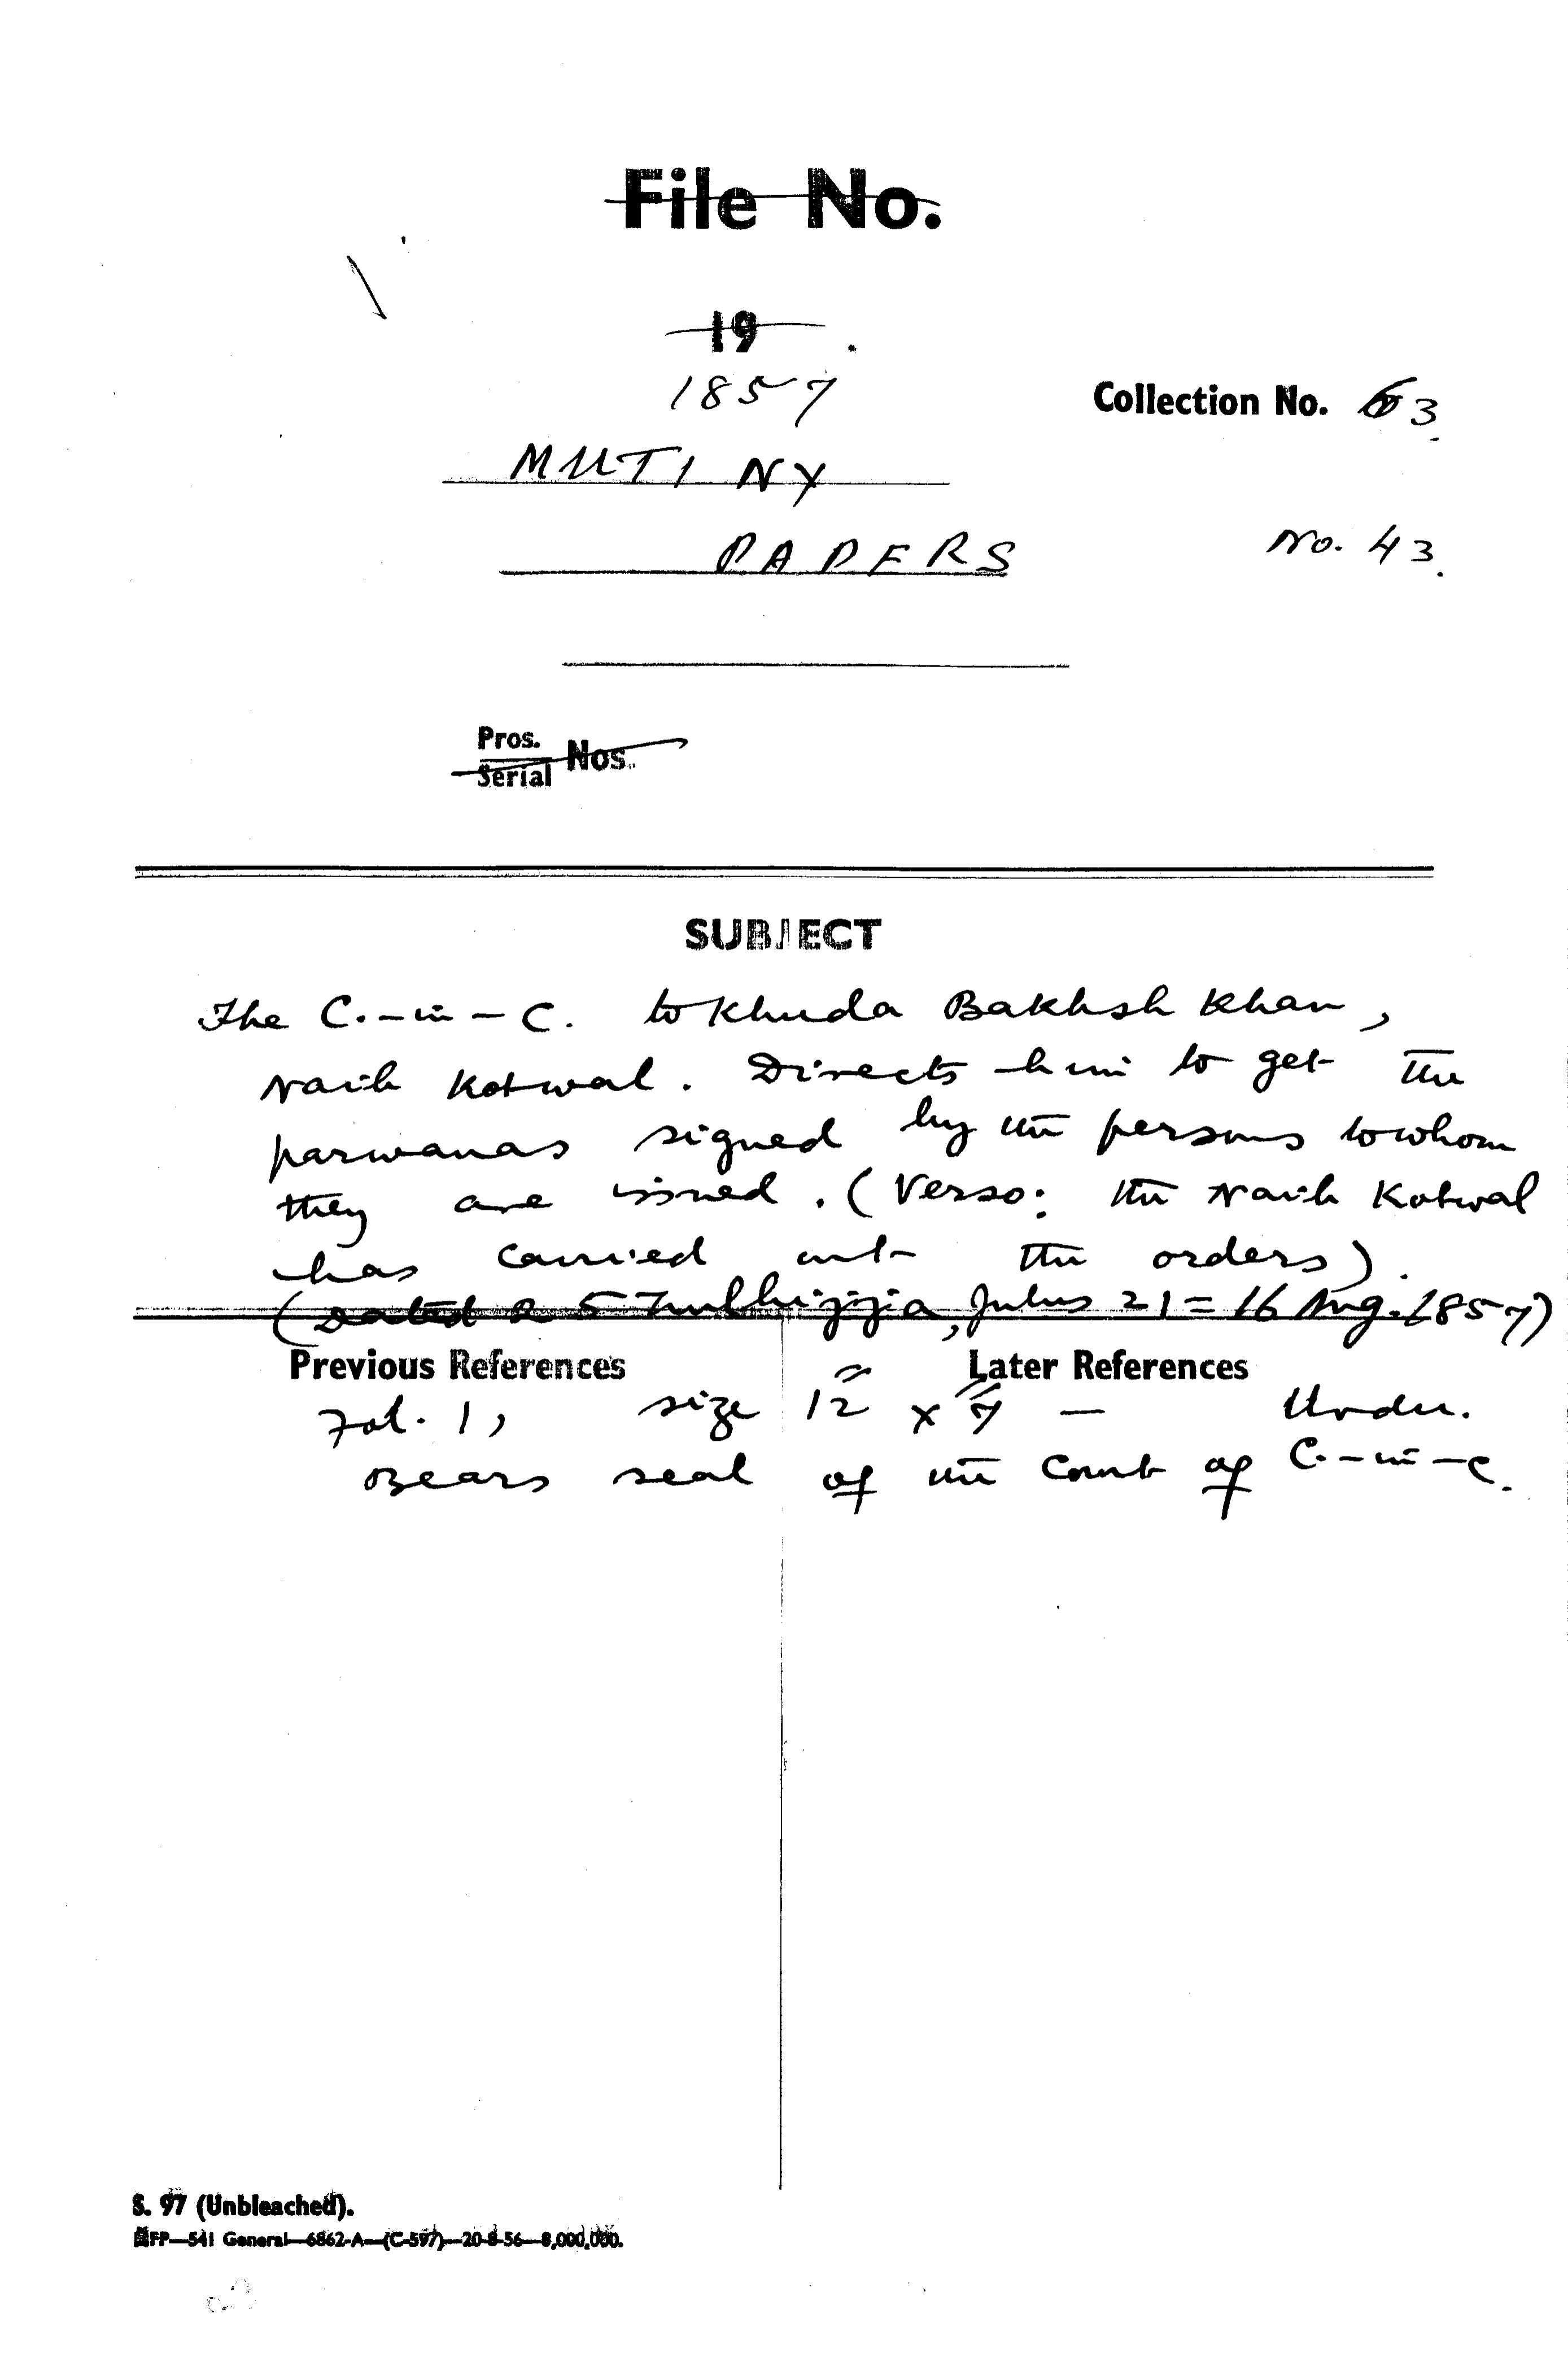 File No.
19
1857
Collection No. 63.
MUTINY
PAPERS
No. 43.
Pros.
Serial Nos.
SUBJECT
The C.-in-C. to Khuda Bakhsh Khan,
Naib Kotwal. Directs him to get the
parwanas signed by the persons to whom
they are issued. (Verso: the Naib Kotwal
has carried out the orders).
(Dated 25 Zulhijjia, Julus 21 = 16 Aug. 1857)
Previous References
Later References
Fol. 1, size 12" x 7" — Urdu.
Bears seal of the Court of C.-in-C.
S. 97 (Unbleached).
FP—541 General—6862-A—(C-597)—20-8-56—8,000,000.